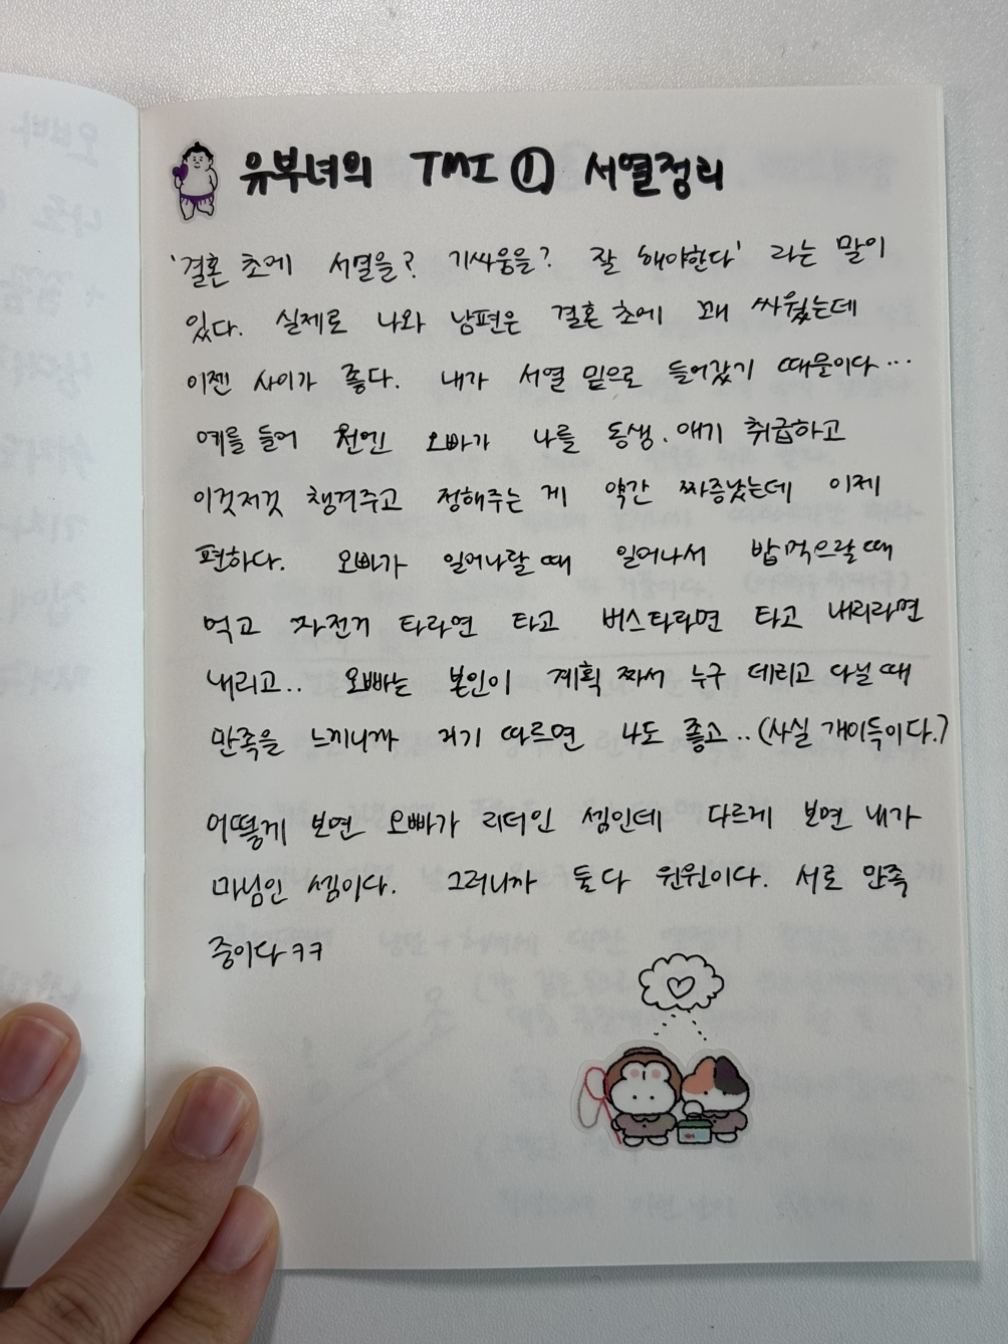 유부녀의 TMI ① 서열정리
'결혼 초에 서열을? 기싸움을? 잘 해야한다' 라는 말이
있다. 실제로 나와 남편은 결혼 초에 꽤 싸웠는데
이젠 사이가 좋다. 내가 서열 밑으로 들어갔기 때문이다...
예를 들어 전엔 오빠가 나를 동생. 애기 취급하고
이것저것 챙겨주고 정해주는 게 약간 짜증났는데 이제
편하다. 오빠가 일어나랄 때 일어나서 밥 먹으랄 때
먹고 자전거 타라면 타고 버스타라면 타고 내리라면
내리고.. 오빠는 본인이 계획 짜서 누구 데리고 다닐 때
만족을 느끼니까 거기 따르면 나도 좋고.. (사실 개이득이다.)
어떻게 보면 오빠가 리더인 셈인데 다르게 보면 내가
마님인 셈이다. 그러니까 둘 다 윈윈이다. 서로 만족
중이다 ㅋㅋ